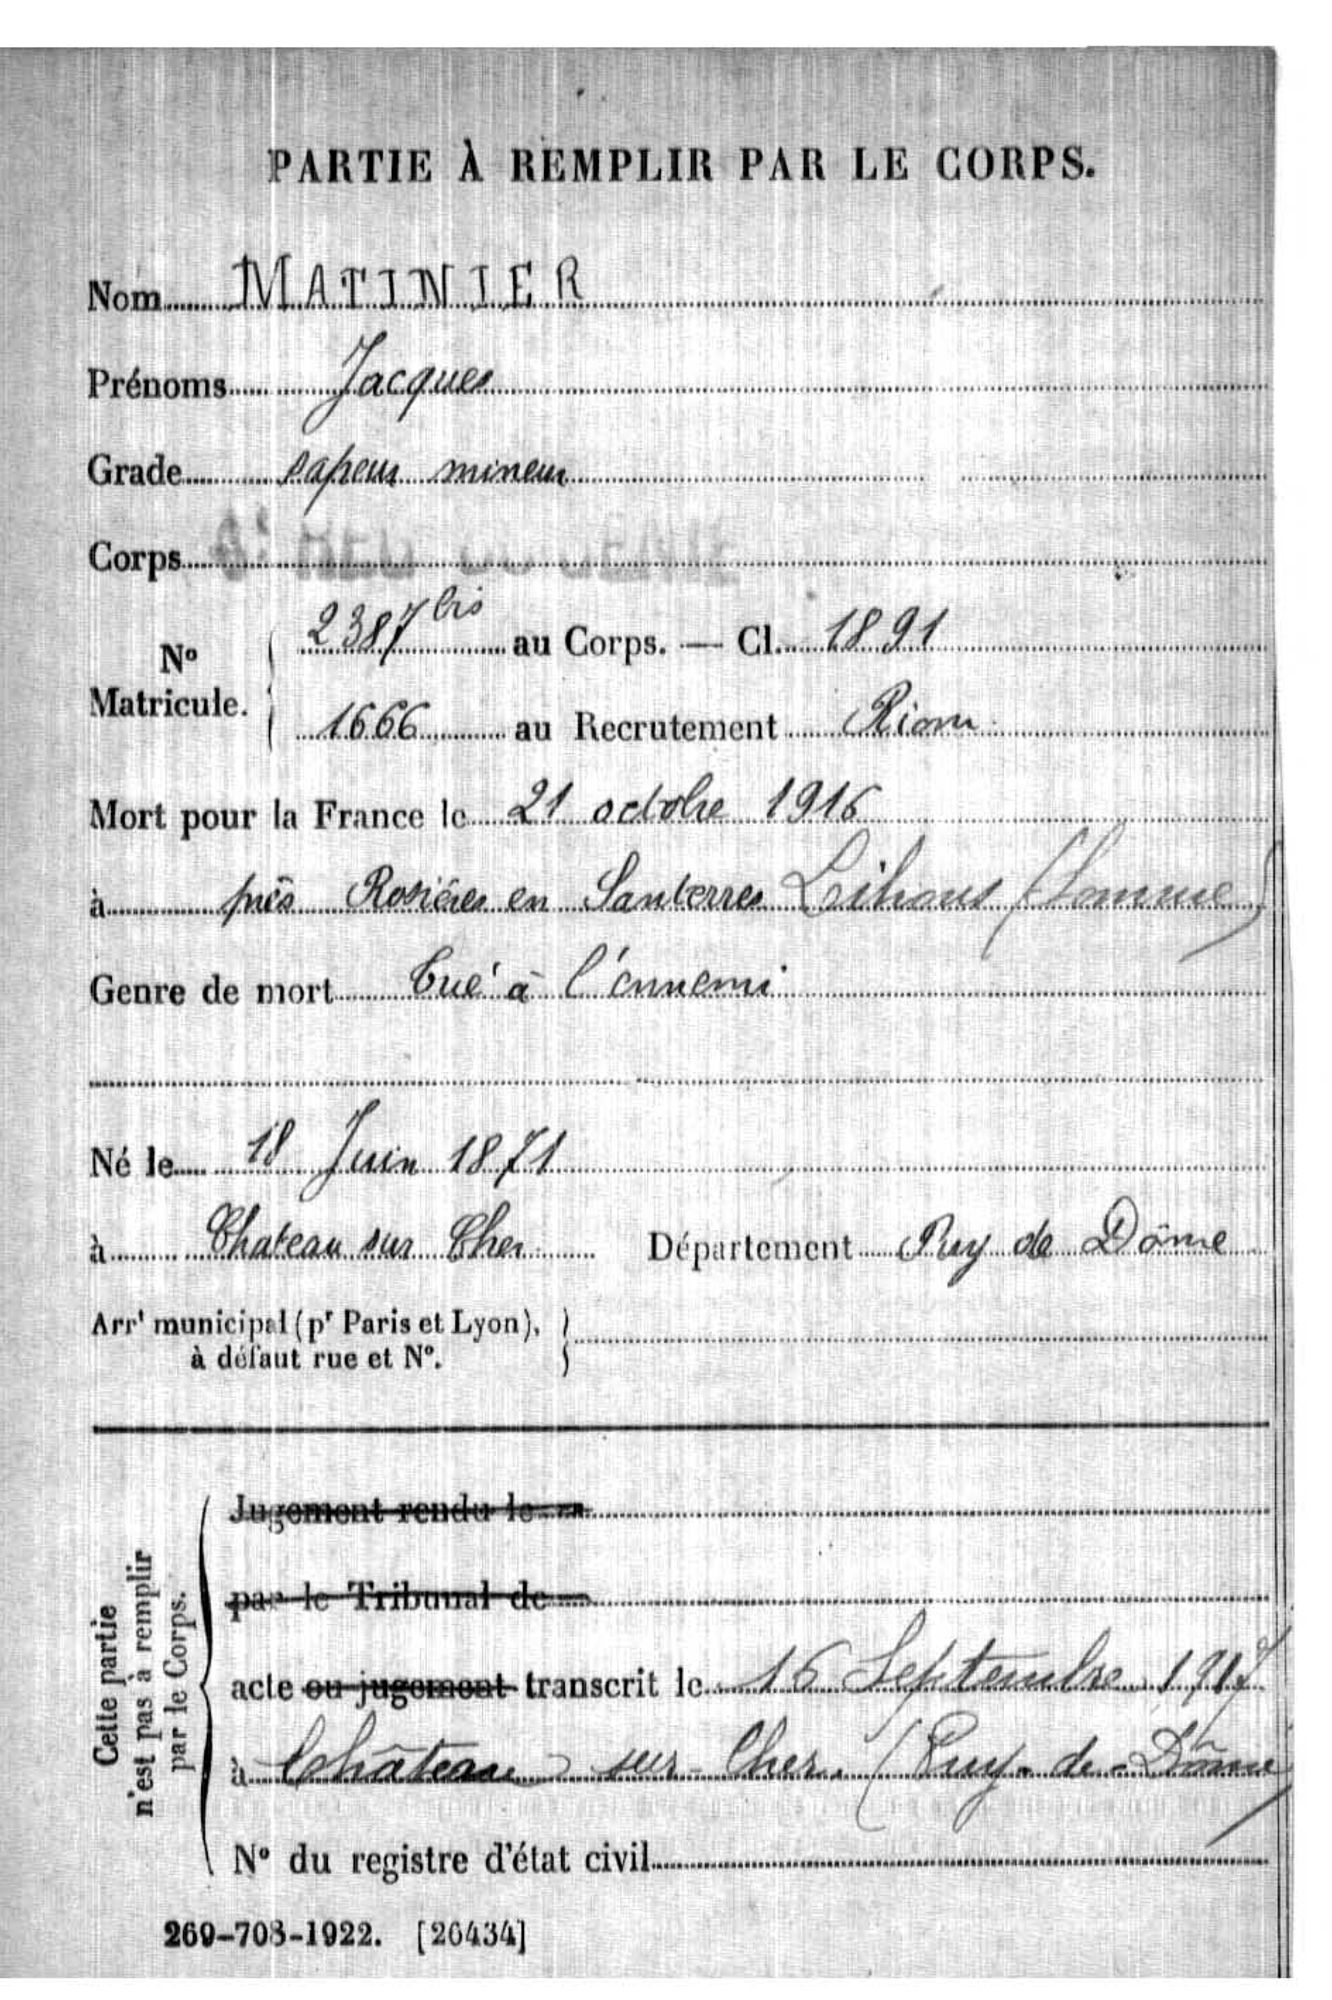 PARTIE À REMPLIR PAR LE CORPS.
Nom MATINIER
Prénoms Jacques
Grade sapeur mineur
Corps
2387 bis au Corps. — Cl. 1891
No
Maticule.
1666 au Recrutement Riom
Mort pour la France le 21 octobre 1916
à près Rosières en Santerres Lihons (Somme)
Genre de mort Tué à l'ennemi
Né le 18 Juin 1871
à Chateau sur Cher Département Puy de Dôme
Arrt municipal (pr Paris et Lyon),
à défaut rue et No.
Jugement rendu le
par le Tribunal de
acte ou jugement transcrit le 16 Septembre 1917
à Château sur-Cher. (Puy-de-Dôme)
No du registre d'état civil
Cette partie
n'est pas à remplir
par le Corps.
269-708-1922. [26434]